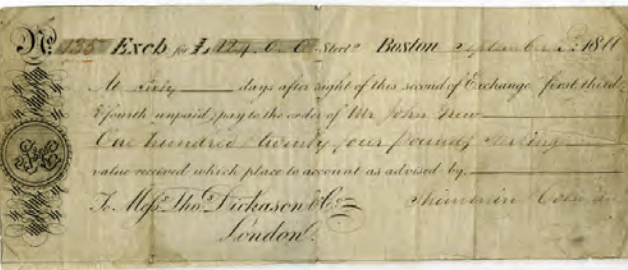 No. 135 Exch. for £124. 0. 0 Sterl.g Boston September 1811
At sixty days after sight of this second of Exchange, first third
& fourth unpaid, pay to the order of Mr John
One hundred twenty four pounds sterling
value received which place to account as advised by,
To Messrs. Thos. Dickason & Co.
London.